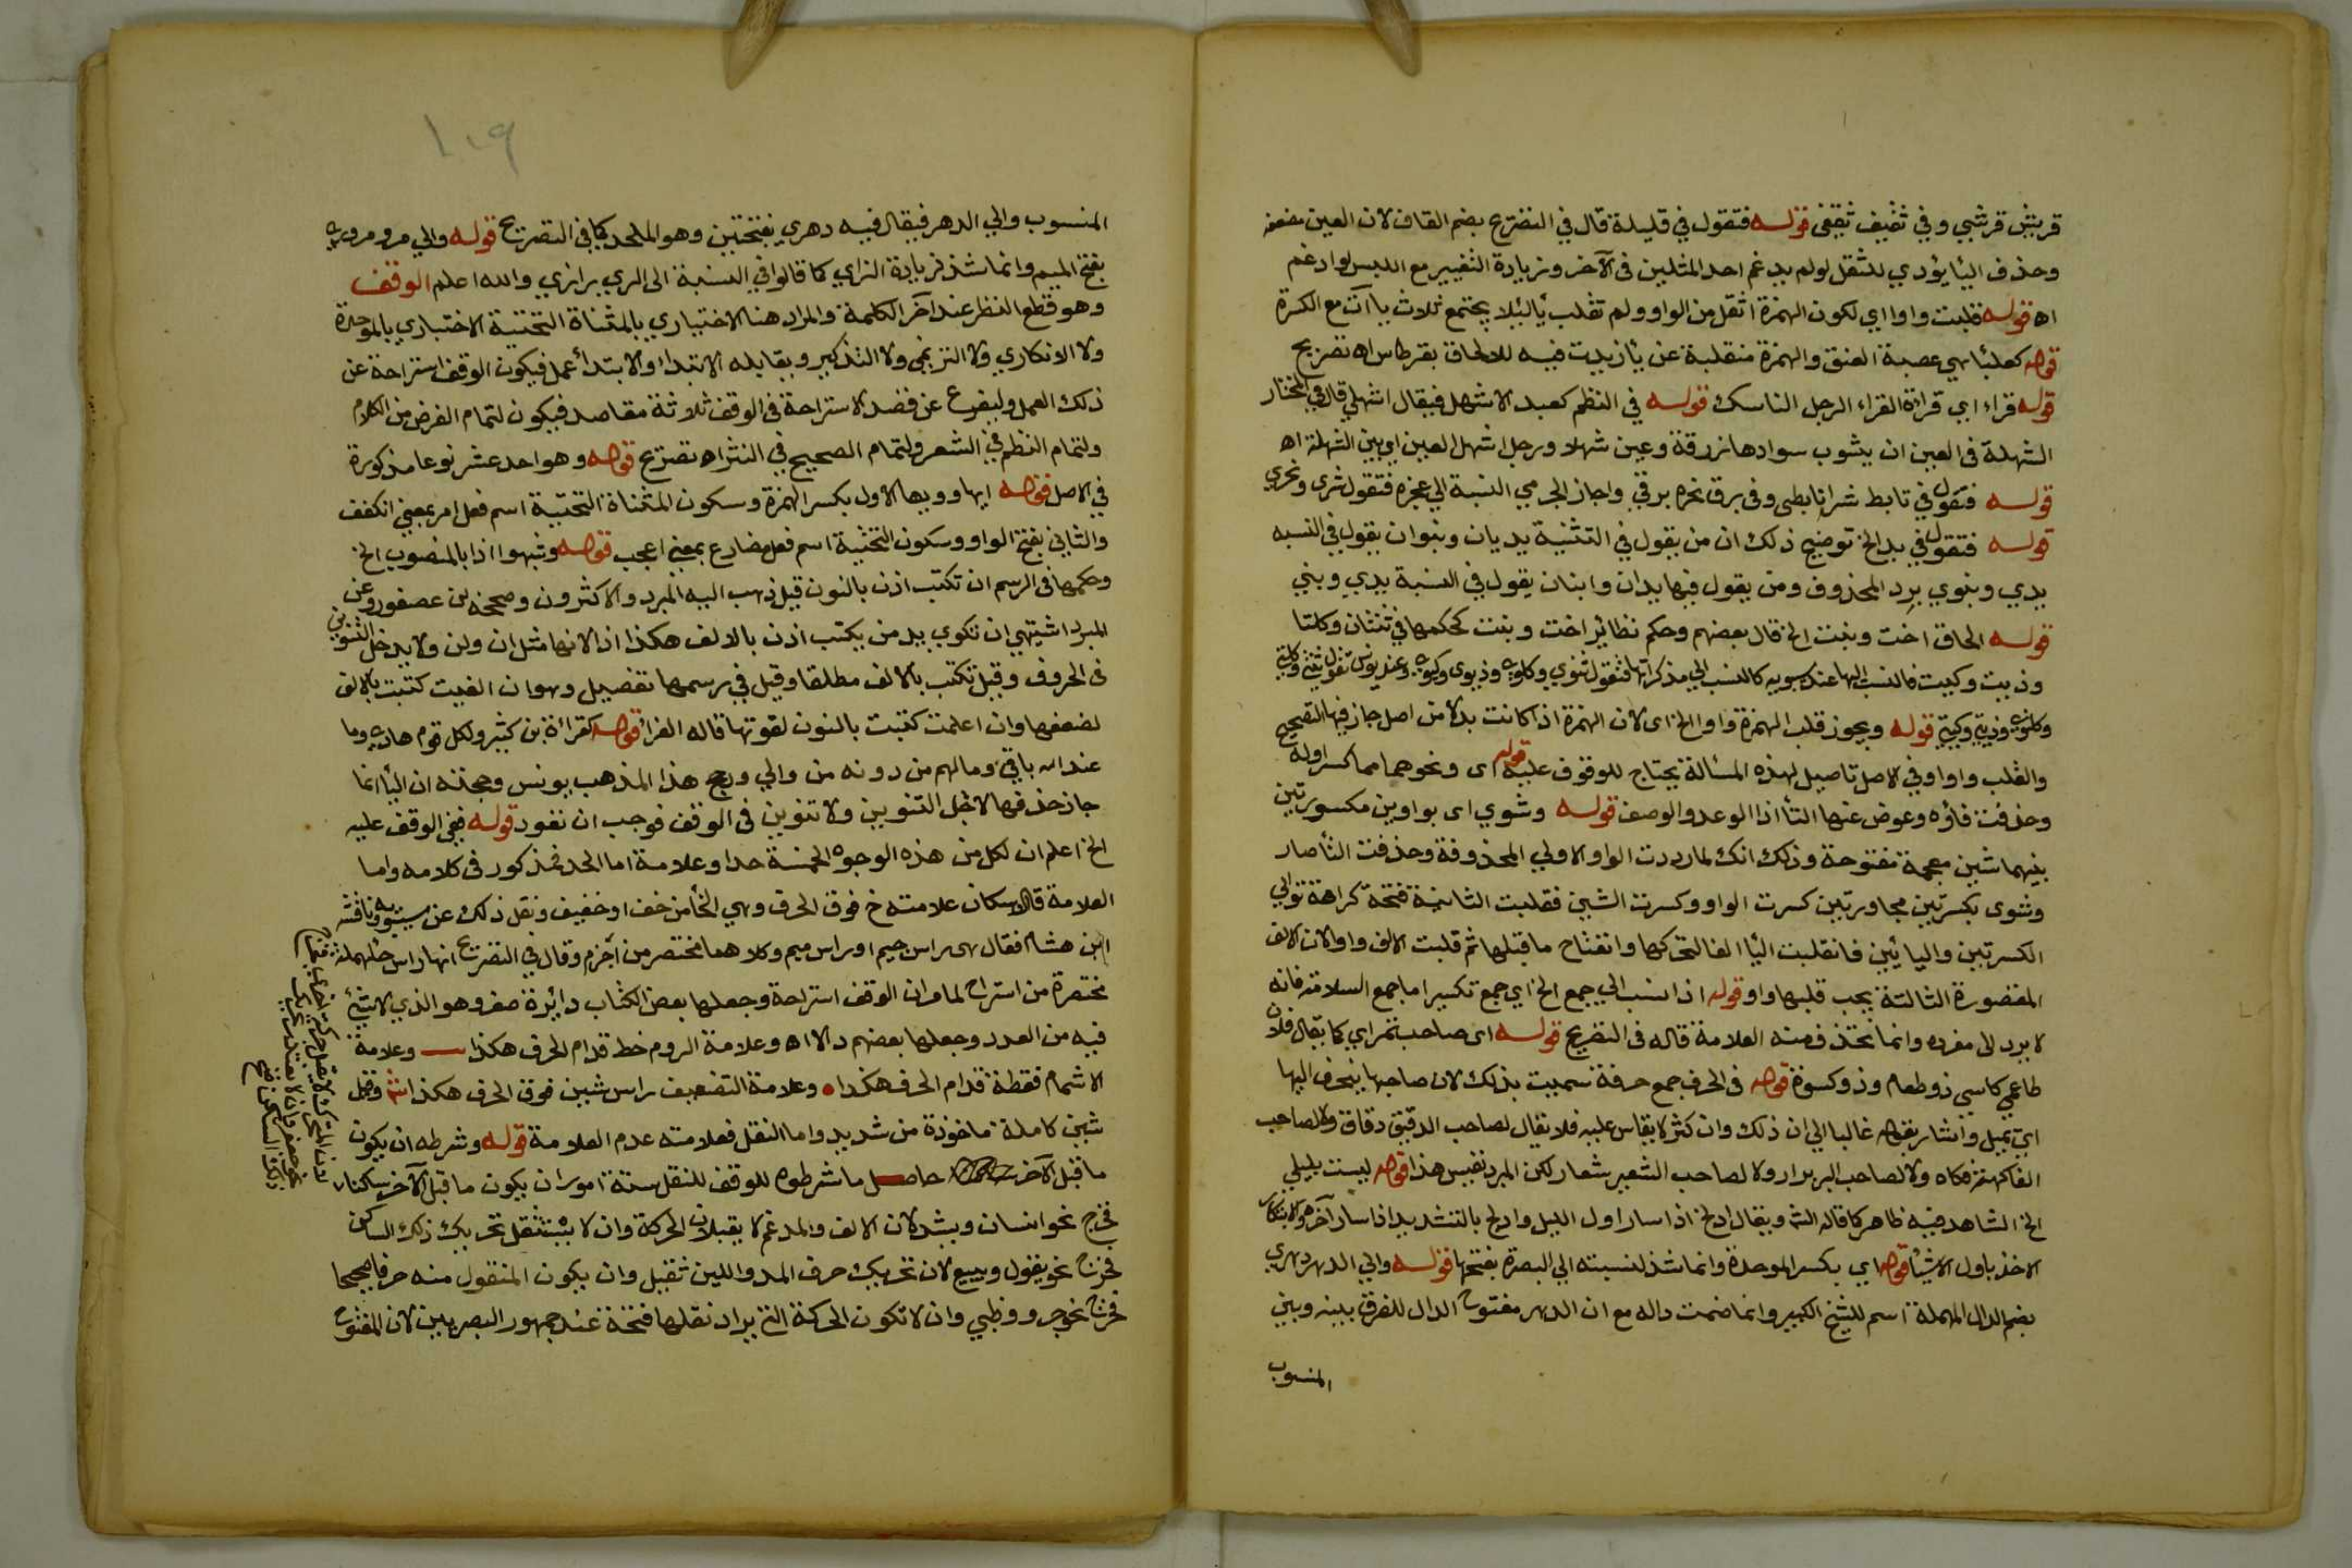 قريش قرشي وفي ثقيف ثقفى قوله فتقول في قليلة قال في التصريح بضم القاف لان العين مضعفة
وحذف اليا يؤدي للثقل لو لم يدغم احد المثلين في الآخر وزيادة التغيير مع اللبس لو ادغم
اه قوله قلبت واوا اي لكون الهمزة اثقل من الواو ولم تقلب يا لئلا يجتمع ثلاث ياآت مع الكسرة
قوله كعلبا هي عصبة العنق والهمزة منقلبة عن يا زيدت فيه للالحاق بقرطاس اه تصريح
قوله قراء اي قراءة القراء الرجل الناسك قوله في النظم كعبد الاشهل فيقال اشهلي قال في المختار
الشهلة في العين ان يشوب سوادها زرقة وعين شهلا ورجل اشهل العين اي بين الشهلة اه
قوله فتقول في تابط شرا تابطي وفي برق نحره برقي واجاز الجرمي النسبة الي عجزه فتقول شري ونحري
قوله فتقول في يد الخ توضيح ذلك ان من يقول في التثنية يديان وبنوان يقول في النسبه
يدي وبنوي برد المحذوف ومن يقول فيها يدان وابنان يقول في النسبة يدي وبني
قوله الحاق اخت وبنت الخ قال بعضهم وحكم نظائر اخت وبنت كحكمها في ثنتان وكلتا
وذيت وكيت فالنسب اليها عند سيبويه كالنسب الي مذكراتها فتقول ثنوي وكلوي وذيوي وكيوي وعند يونس تقول ثنتي وكلتي
وكلتوي وذيتي وكيتي قوله ويجوز قلب الهمزة واوا الخ اى لان الهمزة اذا كانت بدلا من اصل جاز فيها التصحيح
والقلب واوا وفي الاصل تاصيل لهذه المسالة يحتاج للوقوف عليه قوله اى ونحوهما مما كسر اوله
وحذفت فاؤه وعوض عنها التا اذا الوعد والوصف قوله وشوي اى بواوين مكسورتين
بينهما شين معجمة مفتوحة وذلك انك لما رددت الواو الاولي المحذوفة وحذفت التا صار
وشوى بكسرتين مجاورتين كسرت الواو وكسرت الشين فقلبت الثانية فتحة كراهة توالي
الكسرتين واليائين فانقلبت اليا الفا لتحركها وانفتاح ما قبلها ثم قلبت الالف واوا لان الالف
المقصورة الثالثة يجب قلبها واو قوله اذا نسب الي جمع الخ اي جمع تكسير اما جمع السلامة فانه
لا يرد الى مفرده وانما تحذف منه العلامة قاله في التصريح قوله اى صاحب تمر اي كما يقال فلان
طاعم كاسي ذو طعام وذو كسوة قوله في الحرف جمع حرفة سميت بذلك لان صاحبها ينحرف اليها
اي يميل واشار بقوله غالبا الي ان ذلك وان كثر لا يقاس عليه فلا يقال لصاحب الدقيق دقاق ولا لصاحب
الفاكهة فكاه ولا لصاحب البر برار ولا لصاحب الشعير شعار لكن المبرد نقيس هذا قوله ليست بليلي
الخ الشاهد فيه ظاهر كما قاله الش ويقال ادلج اذا سار اول الليل وادلج بالتشديد اذا سار آخره والابتكار
الاخذ باول الاشيا قوله اي بكسر الموحدة وانما شذ لنسبته الي البصرة بفتحها قوله والي الدهر دهري
بضم الدال المهملة اسم للشيخ الكبير وانما ضمت داله مع ان الدهر مفتوح الدال للفرق بينه وبين
المنسوب
١٠٩
المنسوب والي الدهر فيقال فيه دهري بفتحتين وهو الملحد كما في التصريح قوله والي مرو مروزي
بفتح الميم وانما شذ زيادة الزاي كما قالوا في النسبة الى الري رازي والله اعلم الوقف
وهو قطع النظر عند اخر الكلمة والمراد هنا الاختياري بالمثناة التحتية الاختباري بالموحدة
ولا الانكاري ولا الترنمي ولا التذكير ويقابله الابتداء والابتداء عمل فيكون الوقف استراحة عن
ذلك العمل وليفرع عن قصد الاستراحة في الوقف ثلاثة مقاصد فيكون لتمام الغرض من الكلام
ولتمام النظم في الشعر ولتمام الصحيح في النثر اه تصريح قوله وهو احد عشر نوعا مذكورة
في الاصل قوله ايها وويها الاول بكسر الهمزة وسكون المثناة التحتية اسم فعل امر بمعني انكفف
والثاني بفتح الواو وسكون التحتية اسم فعل مضارع بمعني اعجب قوله وشبهوا اذا بالمنصوب الخ
وحكمها في الرسم ان تكتب اذن بالنون قيل ذهب اليه المبرد والاكثرون وصححه بن عصفور وعن
المبرد اشتهي ان تكوي يد من يكتب اذن بالالف هكذا اذا لانها مثل ان ولن ولا يدخل التنوين
في الحروف وقيل تكتب بالالف مطلقا وقيل في رسمها تفصيل وهو ان الغيت كتبت بالالف
لضعفها وان اعلمت كتبت بالنون لقوتها قاله الفراء قوله كقراءة بن كثير ولكل قوم هادي وما
عند الله باقي وما لهم من دونه من والي ورجح هذا المذهب يونس وحجته ان اليا انما
جاز حذفها لاجل التنوين ولا تنوين في الوقف فوجب ان تعود قوله ففي الوقف عليه
الخ اعلم ان لكل من هذه الوجوه الخمسة حدا وعلامة اما الحد فمذكور في كلامه واما
العلامة قال الاسكان علامته خ فوق الحرف وهي الخا من خف او خفيف ونقل ذلك عن سيبويه وناقشه
ابن هشام فقال هي راس جيم او راس ميم وكلاهما مختصر من اجزم وقال في التصريح انها راس حا مهملة
مختصرة من استراح لما مر ان الوقف استراحة وجعلها بعض الكتاب دائرة صفر وهو الذي لا شئ
فيه من العدد وجعلها بعضهم دالا اه وعلامة الروم خط قدام الحرف هكذا ـــ وعلامة
الاشمام نقطة قدام الحرف هكذا • وعلامة التضعيف راس شين فوق الحرف هكذا ش وقيل
شين كاملة ماخوذة من شديد واما النقل فعلامته عدم العلامة قوله وشرطه ان يكون
ما قبل الآخر حاصل ما شرطوه للوقف للنقل ستة امور ان يكون ما قبل الآخر ساكنا
فخرج نحو انسان ويشد لان الالف والمدغم لا يقبلان الحركة وان لا يستثقل تحريك ذلك الساكن
فخرج نحو يقول ويبيع لان تحريك حرف المد واللين ثقيل وان يكون المنقول منه حرفا صحيحا
فخرج نحو جرو وظبي وان لا تكون الحركة التي يراد نقلها فتحة عند جمهور البصريين لان المفتوح